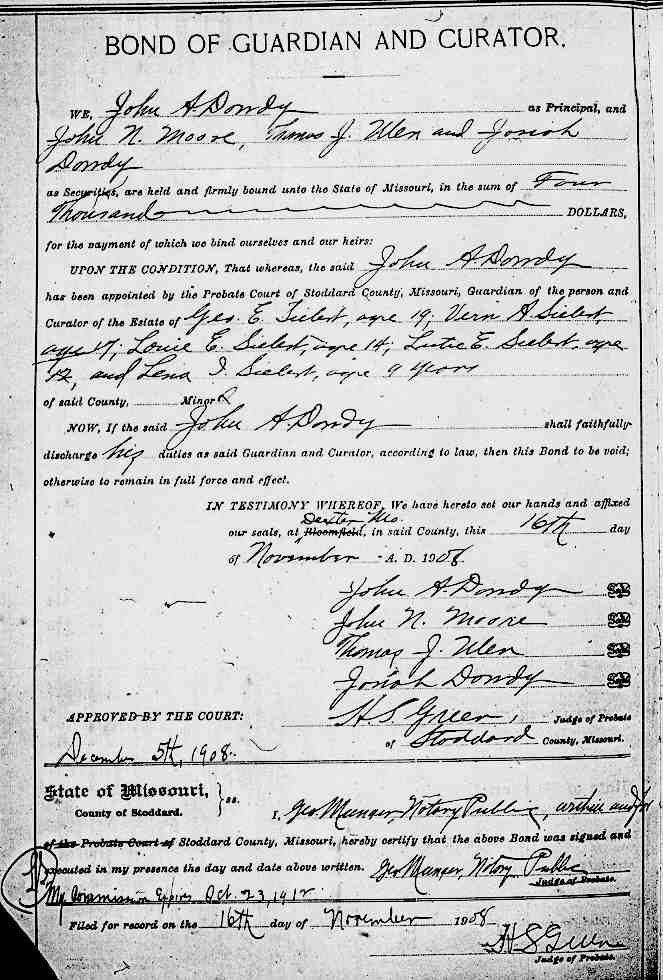 BOND OF GUARDIAN AND CURATOR.
WE, John A Dowdy as Principal, and
John N. Moore, Thomas J. Ulen and Josiah
Dowdy
as Securities, are held and firmly bound unto the State of Missouri, in the sum of Four
Thousand DOLLARS,
for the payment of which we bind ourselves and our heirs:
UPON THE CONDITION, That whereas, the said John A Dowdy
has been appointed by the Probate Court of Stoddard County, Missouri, Guardian of the person and
Curator of the Estate of Geo. E. Siebert, age 19; Vern A Siebert,
age 17; Louie E. Siebert, age 14; E. Siebert, age
12, and Lena I. Siebert, age 9 years
of said County, Minors
NOW, If the said John A. Dowdy shall faithfully
discharge his duties as said Guardian and Curator, according to law, then this Bond to be void;
otherwise to remain in full force and effect.
IN TESTIMONY WHEREOF, We have hereto set our hands and affixed
Dexter Mo.
our seals, at Bloomfield, in said County, this 16th day
of November A. D. 1908.
John A. Dowdy
John N. Moore
Thomas J. Ulen
Josiah Dowdy
APPROVED BY THE COURT: H. S. Green, Judge of Probate
December 5th, 1908. of Stoddard County, Missouri.
State of Missouri,
County of Stoddard. } ss. I, Geo Munger Notary Public, within and for
of the Probate Court of Stoddard County, Missouri, hereby certify that the above Bond was signed and
executed in my presence the day and date above written. Geo Munger, Notary Public
Judge of Probate.
My Commission Expires Oct. 23, 1912.
Filed for record on the 16th day of November 1908
H S Green
Judge of Probate.